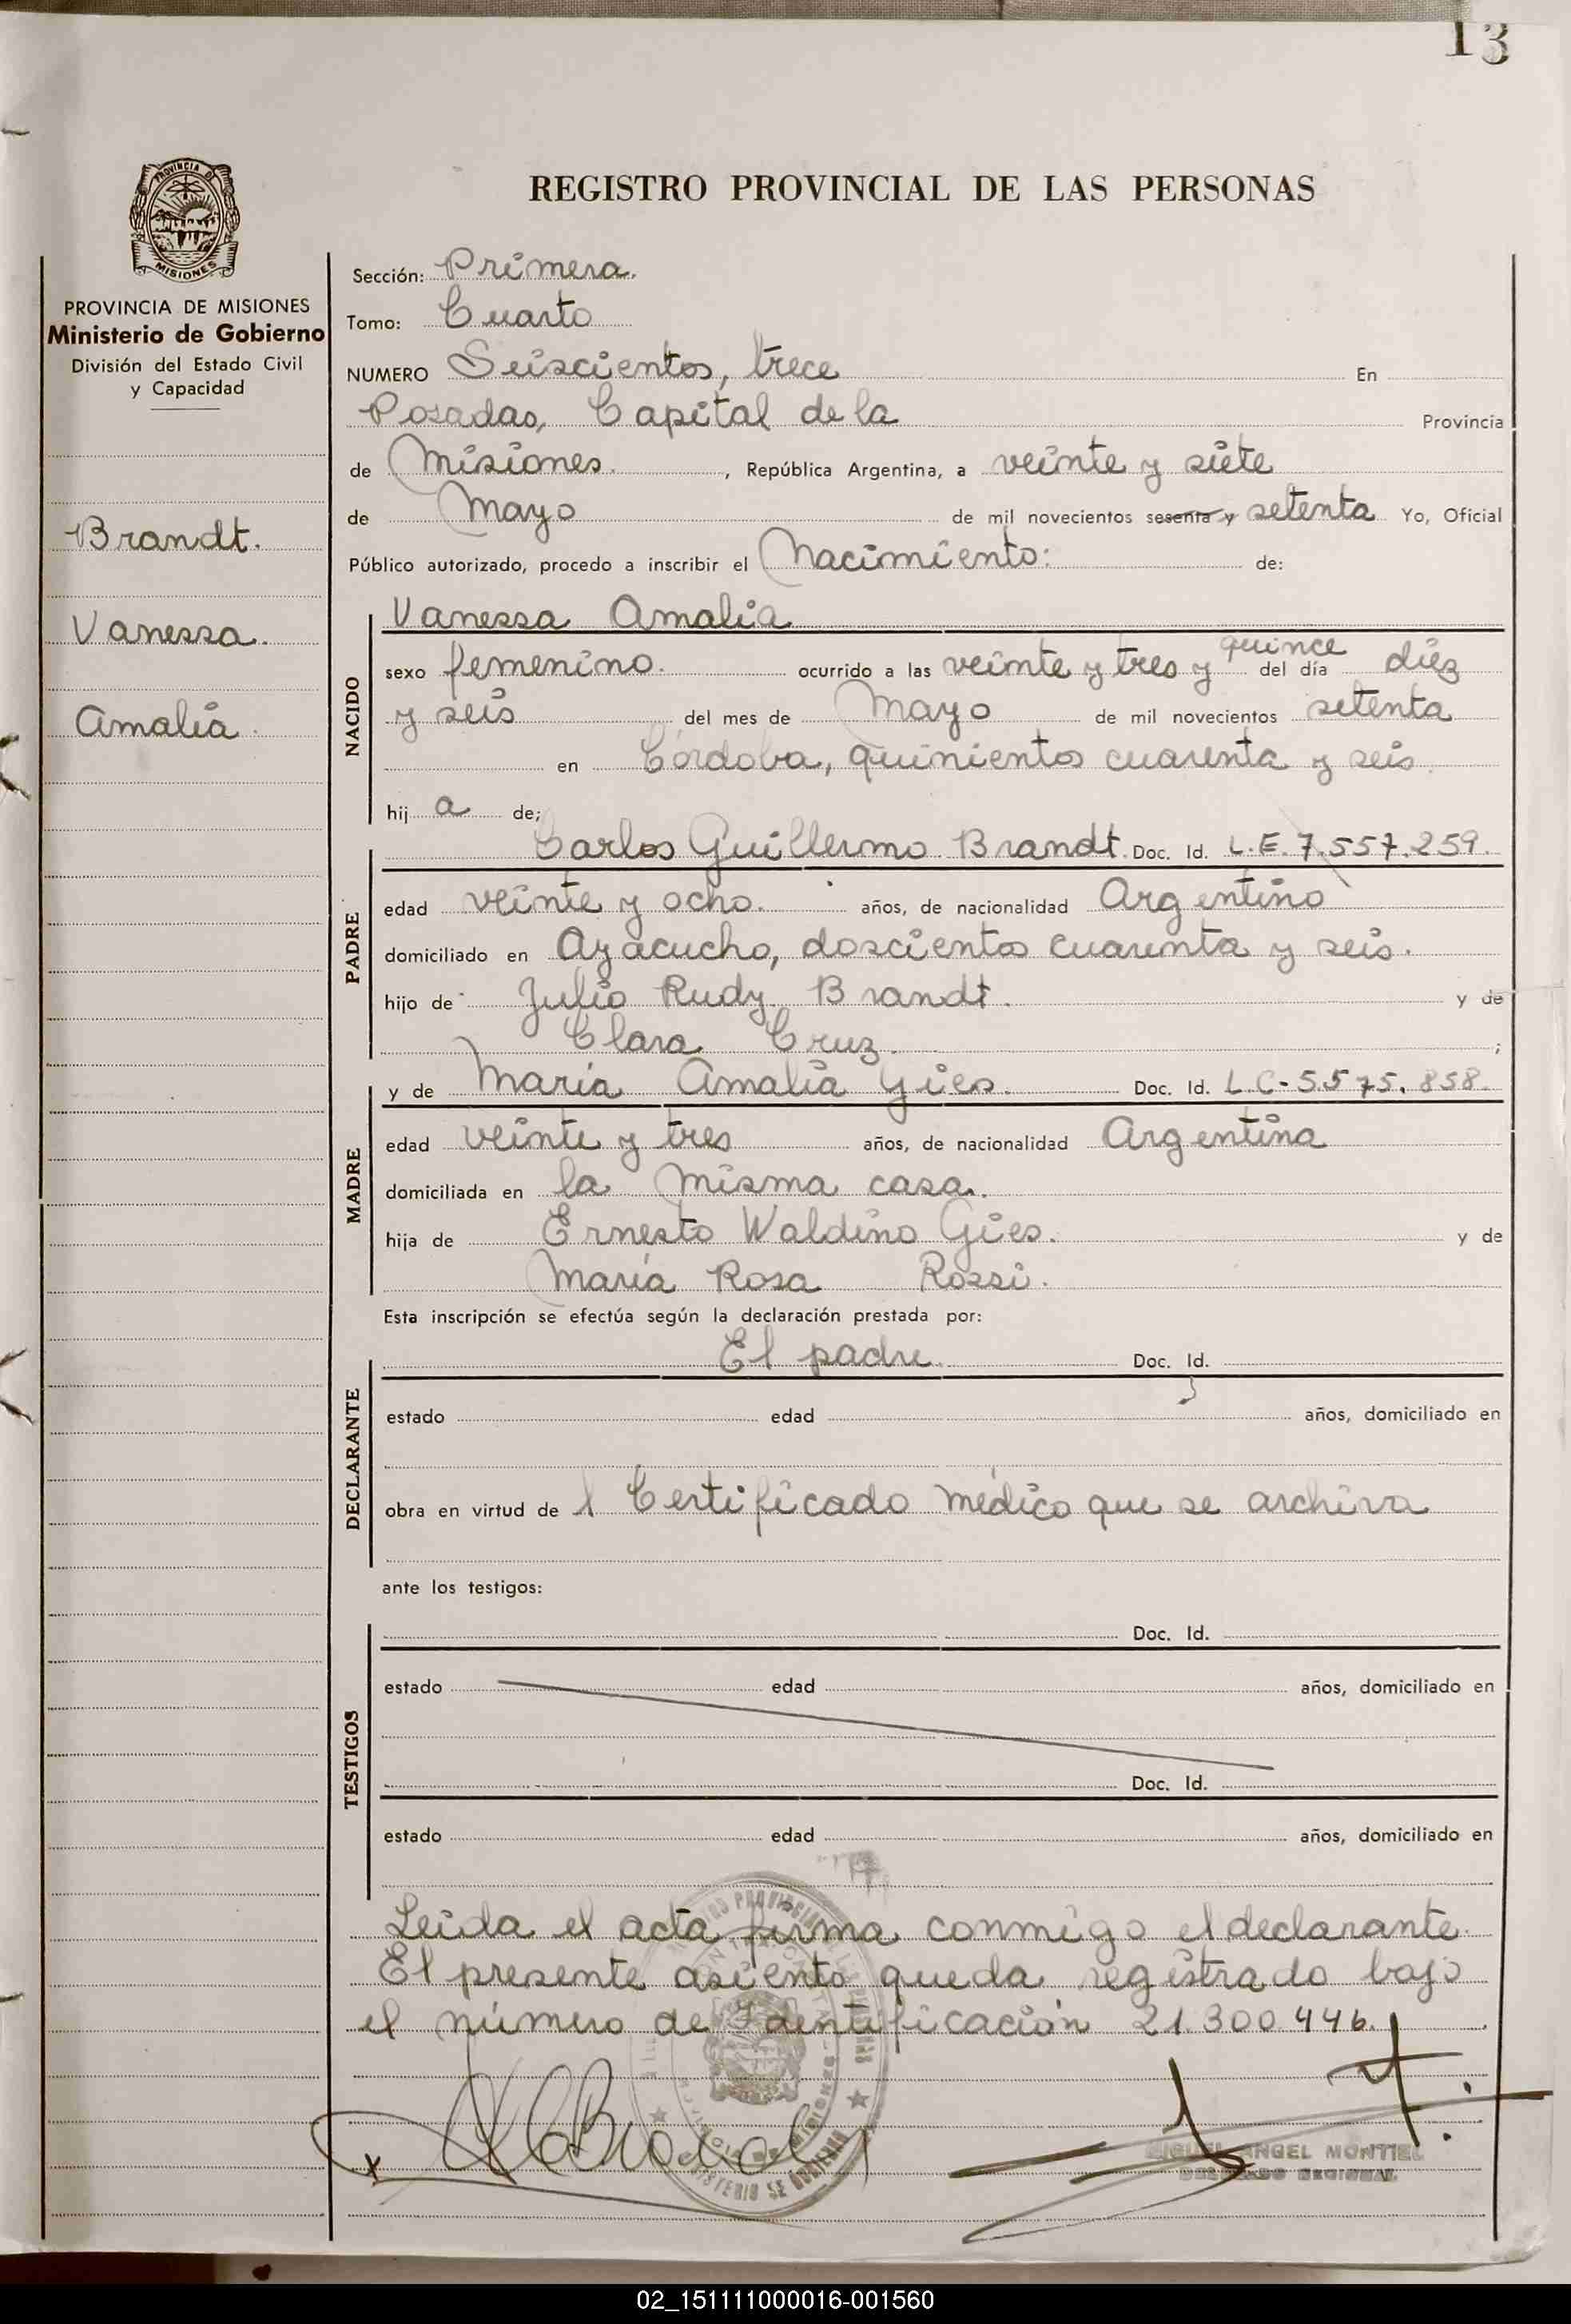 13
PROVINCIA DE
MISIONES
REGISTRO PROVINCIAL DE LAS PERSONAS
PROVINCIA DE MISIONES
Ministerio de Gobierno
División del Estado Civil
y Capacidad
Brandt.
Vanessa.
Amalia.
Sección: Primera.
Tomo: Cuarto
NUMERO Seiscientos, trece En
Posadas, Capital de la Provincia
de Misiones. , República Argentina, a veinte y siete
de Mayo de mil novecientos sesenta y setenta Yo, Oficial
Público autorizado, procedo a inscribir el Nacimiento: de:
NACIDO
Vanessa Amalia
sexo femenino. ocurrido a las veinte y tres y quince del día diez
y seis del mes de Mayo de mil novecientos setenta
en Córdoba, quinientos cuarenta y seis.
hij a de;
PADRE
Carlos Guillermo Brandt. Doc. Id. L.E. 7.557.259.
edad veinte y ocho. años, de nacionalidad Argentino
domiciliado en Ayacucho, doscientos cuarenta y seis.
hijo de Julio Rudy Brandt. y de
Clara Cruz. ;
MADRE
y de María Amalia Gies. Doc. Id. L.C-5.575.858.
edad veinte y tres años, de nacionalidad Argentina
domiciliada en la misma casa.
hija de Ernesto Waldino Gies. y de
María Rosa Rossi.
Esta inscripción se efectúa según la declaración prestada por:
DECLARANTE
El padre. Doc. Id.
estado edad años, domiciliado en
obra en virtud de l Certificado médico que se archiva
ante los testigos:
TESTIGOS
Doc. Id.
estado edad años, domiciliado en
Doc. Id.
estado edad años, domiciliado en
Leída el acta firma conmigo el declarante.
El presente asiento queda registrado bajo
el número de Identificación 21.300.446.
MIGUEL ANGEL MONTIEL
02_151111000016-001560